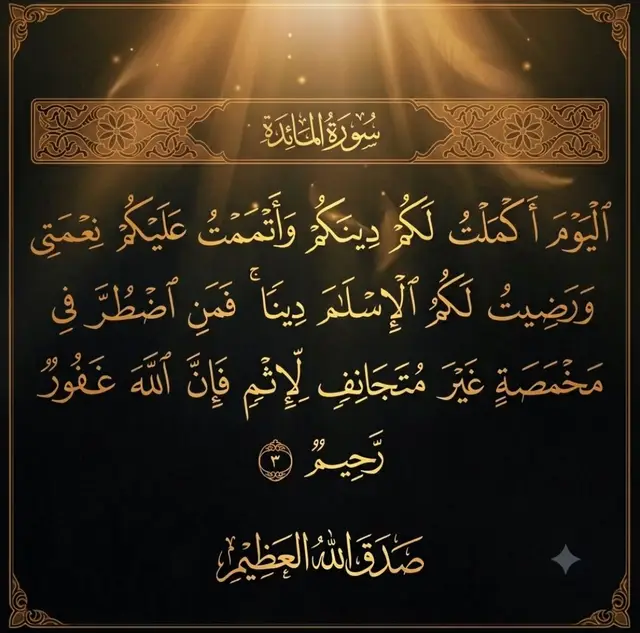 سُورَةُ المَائِدَةِ
ٱلْيَوْمَ أَكْمَلْتُ لَكُمْ دِينَكُمْ وَأَتْمَمْتُ عَلَيْكُمْ نِعْمَتِى
وَرَضِيتُ لَكُمُ ٱلْإِسْلَـٰمَ دِينًا ۚ فَمَنِ ٱضْطُرَّ فِى
مَخْمَصَةٍ غَيْرَ مُتَجَانِفٍ لِّإِثْمٍ فَإِنَّ ٱللَّهَ غَفُورٌ
رَّحِيمٌ ٣
صَدَقَ اللهُ العَظِيمُ